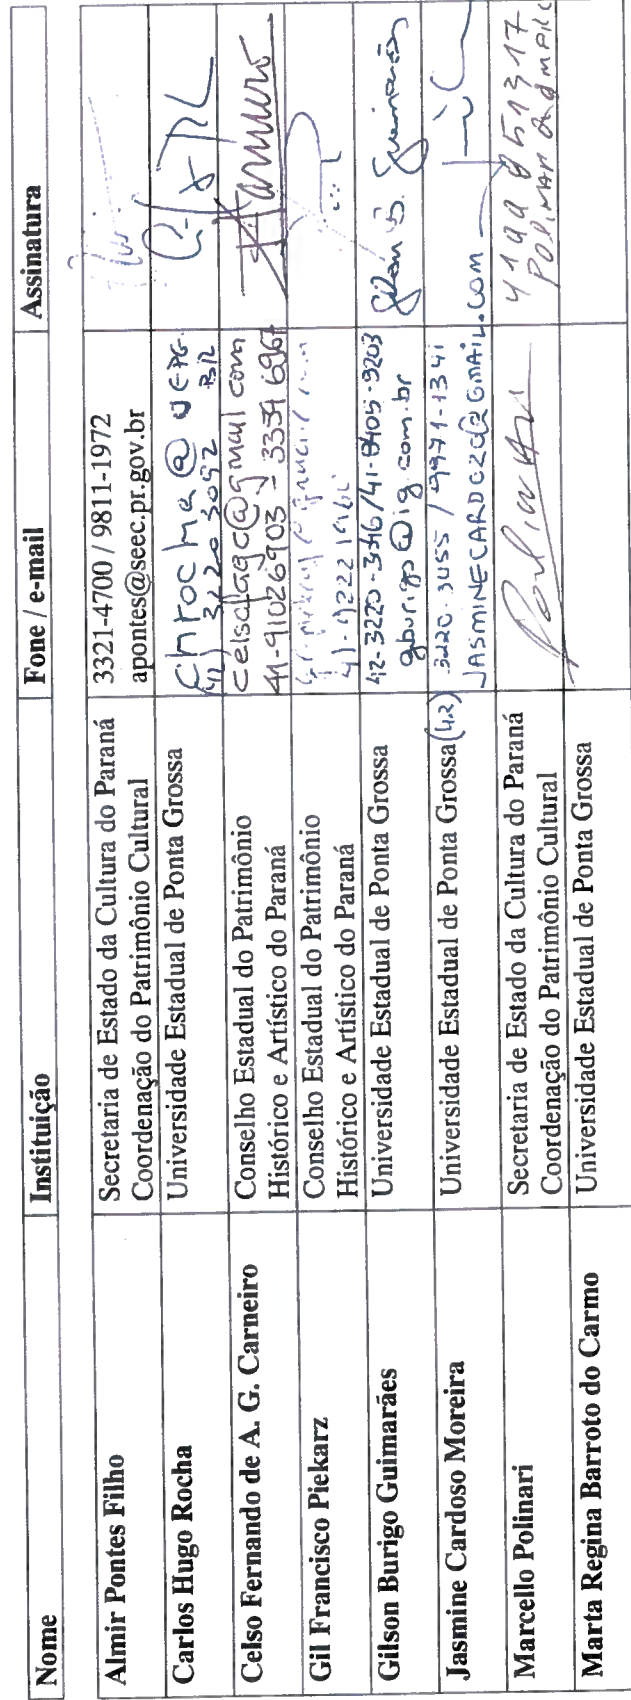 Nome Instituição Fone / e-mail Assinatura
Almir Pontes Filho
Secretaria de Estado da Cultura do Paraná
Coordenação do Patrimônio Cultural
3321-4700 / 9811-1972
apontes@seec.pr.gov.br
Carlos Hugo Rocha
Universidade Estadual de Ponta Grossa
chrocha@uepg.
br
(42) 3220 3092
Celso Fernando de A. G. Carneiro
Conselho Estadual do Patrimônio
Histórico e Artístico do Paraná
41-91026903 - 3334 6967
Gil Francisco Piekarz
Conselho Estadual do Patrimônio
Histórico e Artístico do Paraná
Gilson Burigo Guimarães
Universidade Estadual de Ponta Grossa
42-3220-3316/41-8405-9203
gburigo@ig.com.br
Gilson B. Guimarães
Jasmine Cardoso Moreira
Universidade Estadual de Ponta Grossa
(42) 3220-3455 / 9971-1341
JASMINECARDOZO@GMAIL.COM
Marcello Polinari
Secretaria de Estado da Cultura do Paraná
Coordenação do Patrimônio Cultural
Polinari
4199851317
Marta Regina Barroto do Carmo
Universidade Estadual de Ponta Grossa